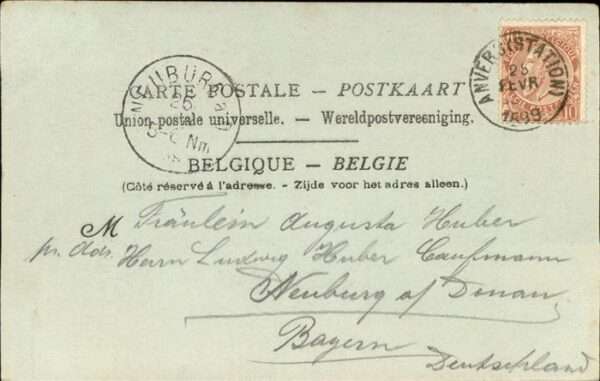 ANVERS (STATION)
25
FEVR
1899
NEUBURG a/D
26
5-6 Nm
CARTE POSTALE – POSTKAART
Union postale universelle. – Wereldpostvereeniging.
BELGIQUE – BELGIE
(Côté réservé à l'adresse. - Zijde voor het adres alleen.)
M Fräulein Augusta Huber
pr. Ads. Herrn Ludwig Huber Kaufmann
Neuburg a/ Donau
Bayern
Deutschland